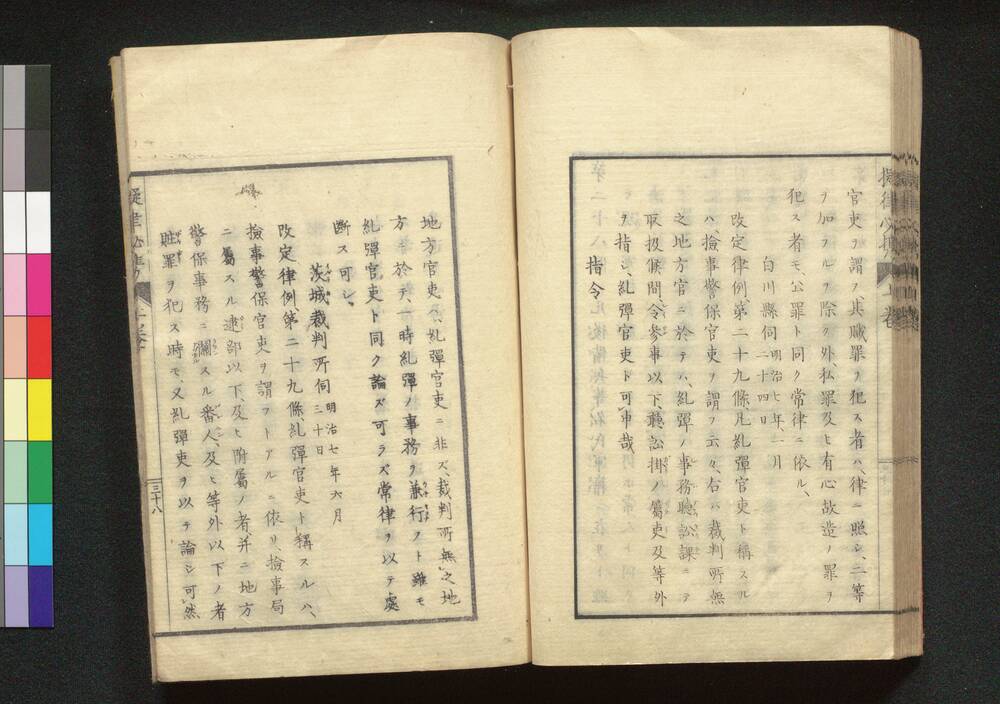 官吏ヲ謂ノ其職罪ヲ犯ス者ハ、律ニ照シ、二等
ヲ加フルヲ除ク外、私罪及ヒ有心故造ノ罪ヲ
犯ス者モ、公罪ト同ク常律ニ依ル、
白川縣伺 明治七年、一月二十四日
改定律例、第二十九條、凡糺彈官吏ト稱スル
ハ、撿事警保官吏ヲ謂フ云々、右ハ裁判所無
之地方官ニ於テハ、糺彈ノ事務聽訟課ニテ
取扱候間、令參事以下、聽訟掛ノ屬吏及等外
ヲ指シ、糺彈官吏ト可申哉
指令
地方官吏ハ、糺彈官吏ニ非ズ、裁判所無之地
方ニ於テ、一時糺彈ノ事務ヲ兼行フト雖モ
糺彈官吏ト同ク論ズ可ラズ常律ヲ以テ處
斷ス可シ、
茨城裁判所伺 明治七年六月三十日
改定律例、第二十九條糺彈官吏ト稱スルハ、
撿事警保官吏ヲ謂フトアルニ依リ、撿事局
ニ屬スル逮部以下、及ヒ附屬ノ者、并ニ地方
警保事務ニ關スル番人、及ヒ等外以下ノ者
贓罪ヲ犯ス時モ、又糺彈吏ヲ以テ論シ可然
三十八